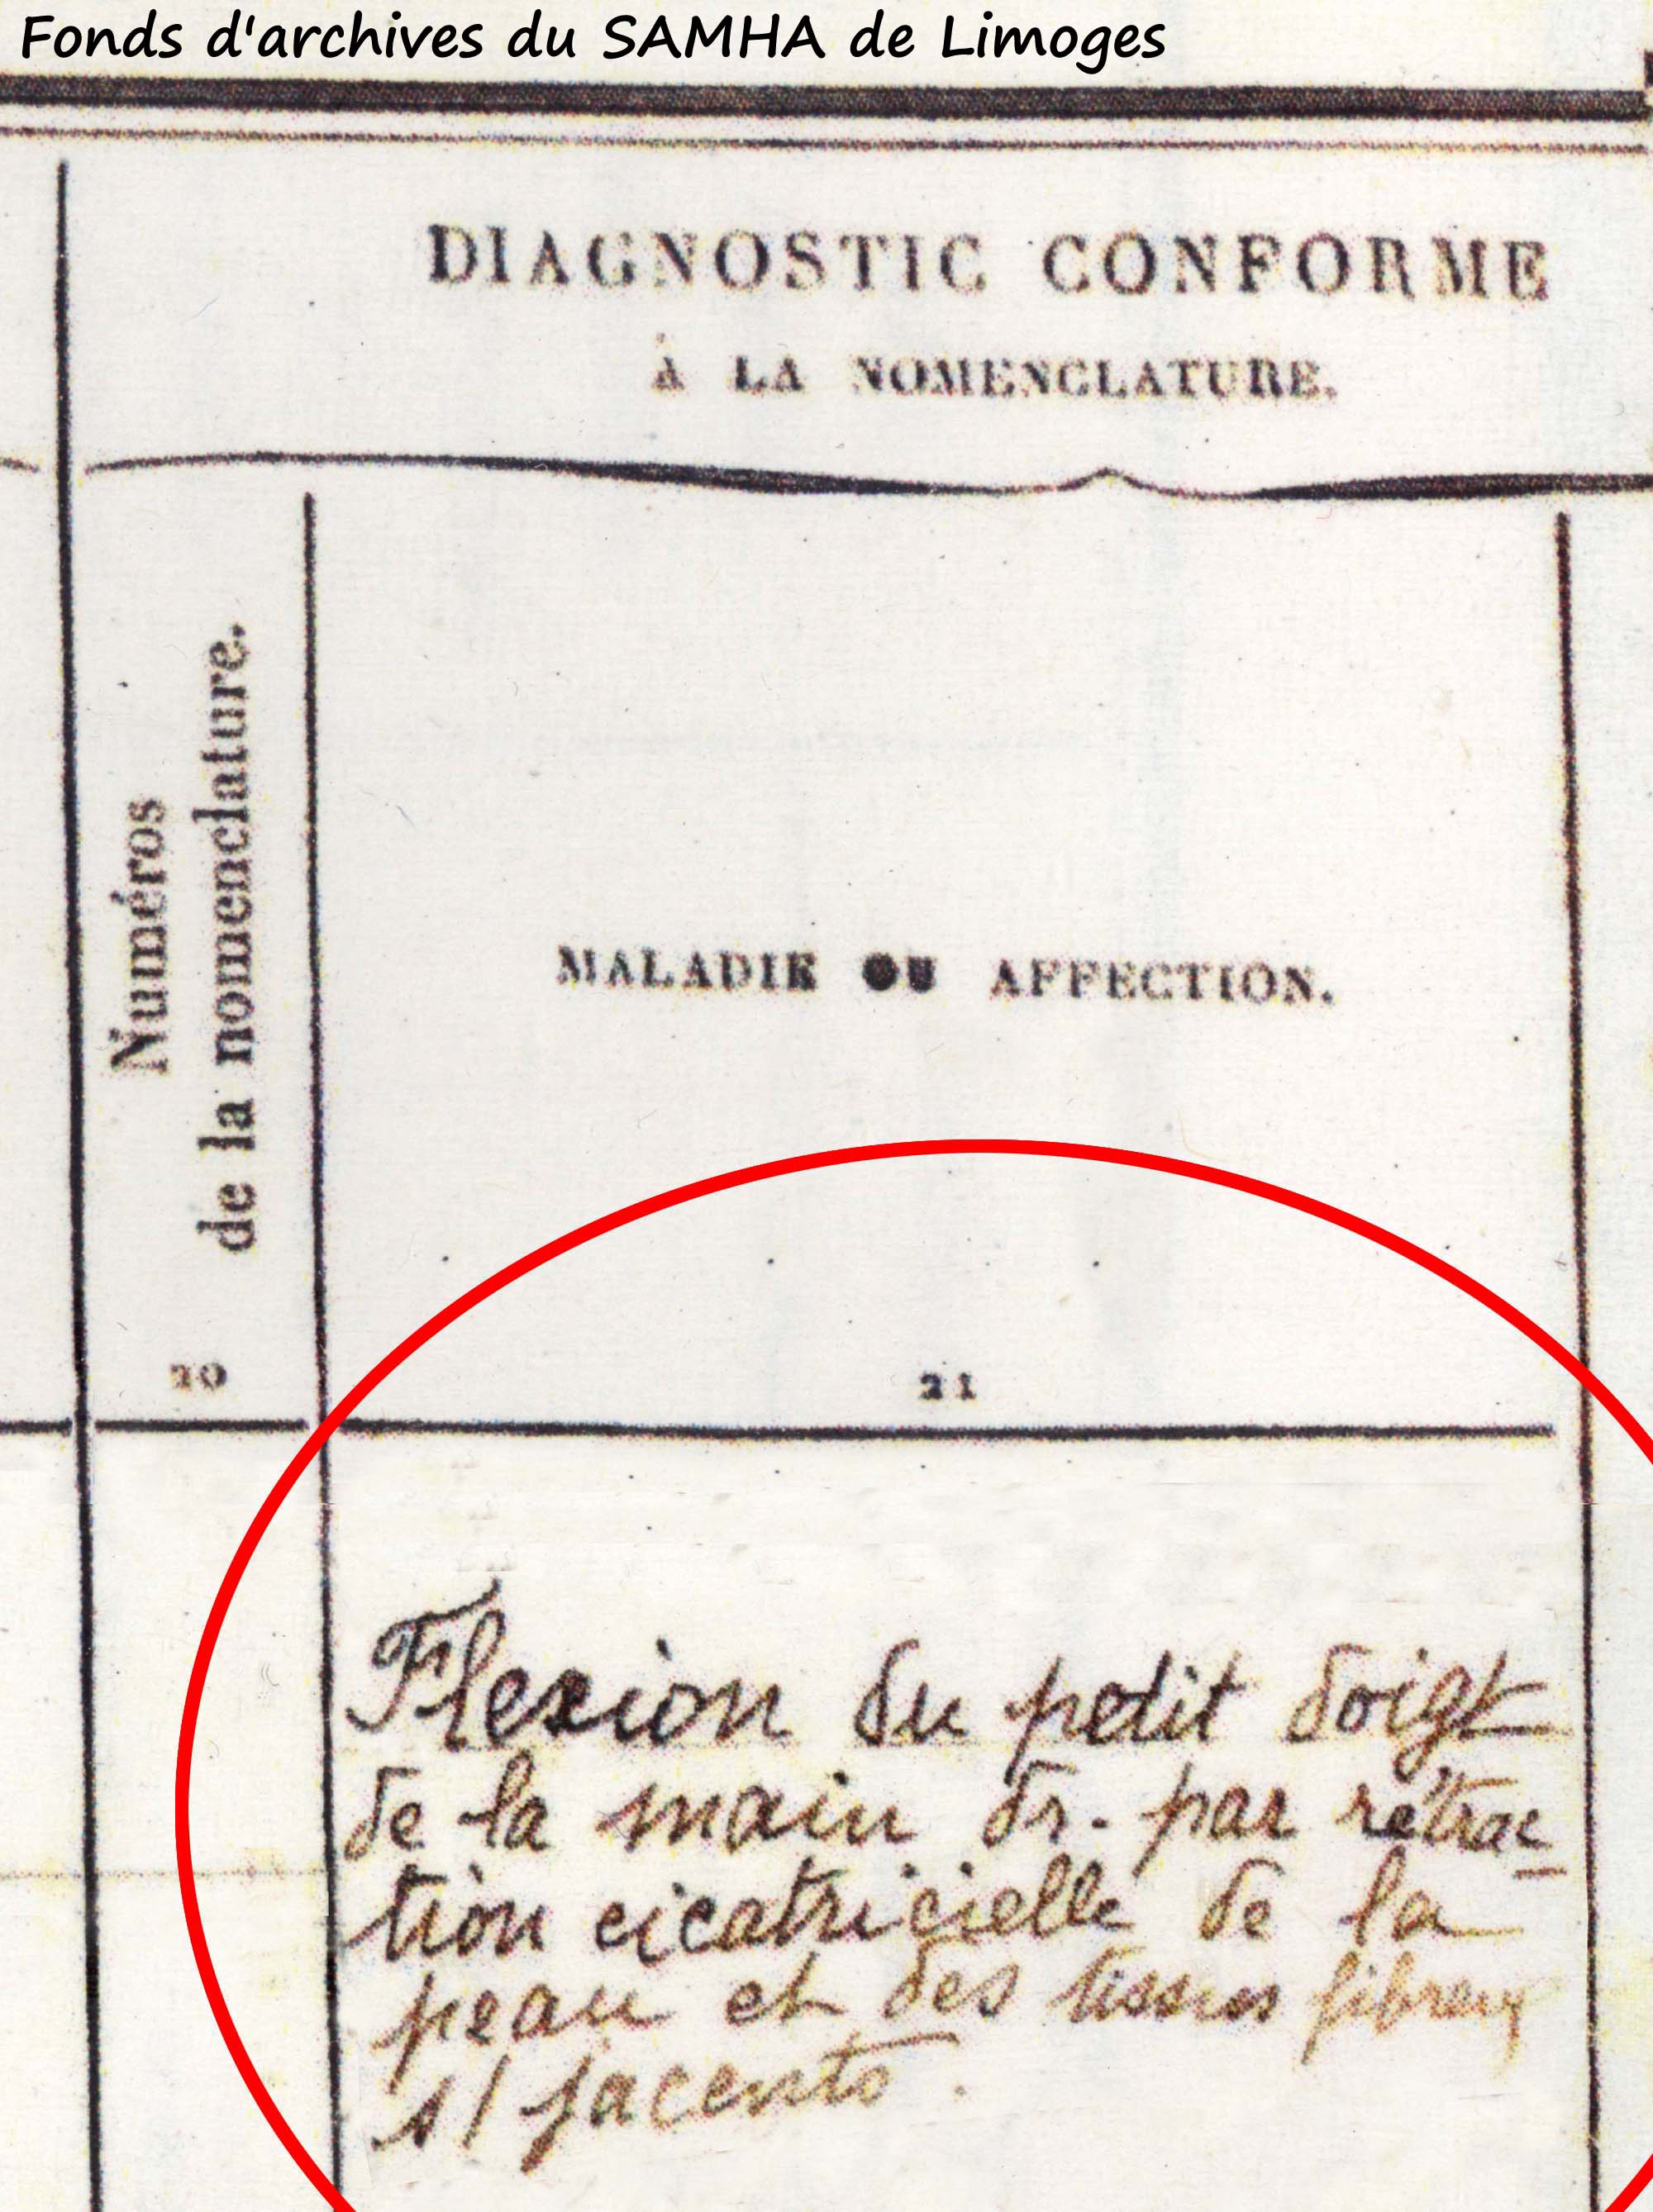 Fonds d'archives du SAMHA de Limoges
DIAGNOSTIC CONFORME
À LA NOMENCLATURE.
Numéros
de la nomenclature.
MALADIE OU AFFECTION.
20
21
Flexion du petit doigt
de la main dr. par rétrac
tion cicatricielle de la
peau et des tissus fibreux
s/ jacents.